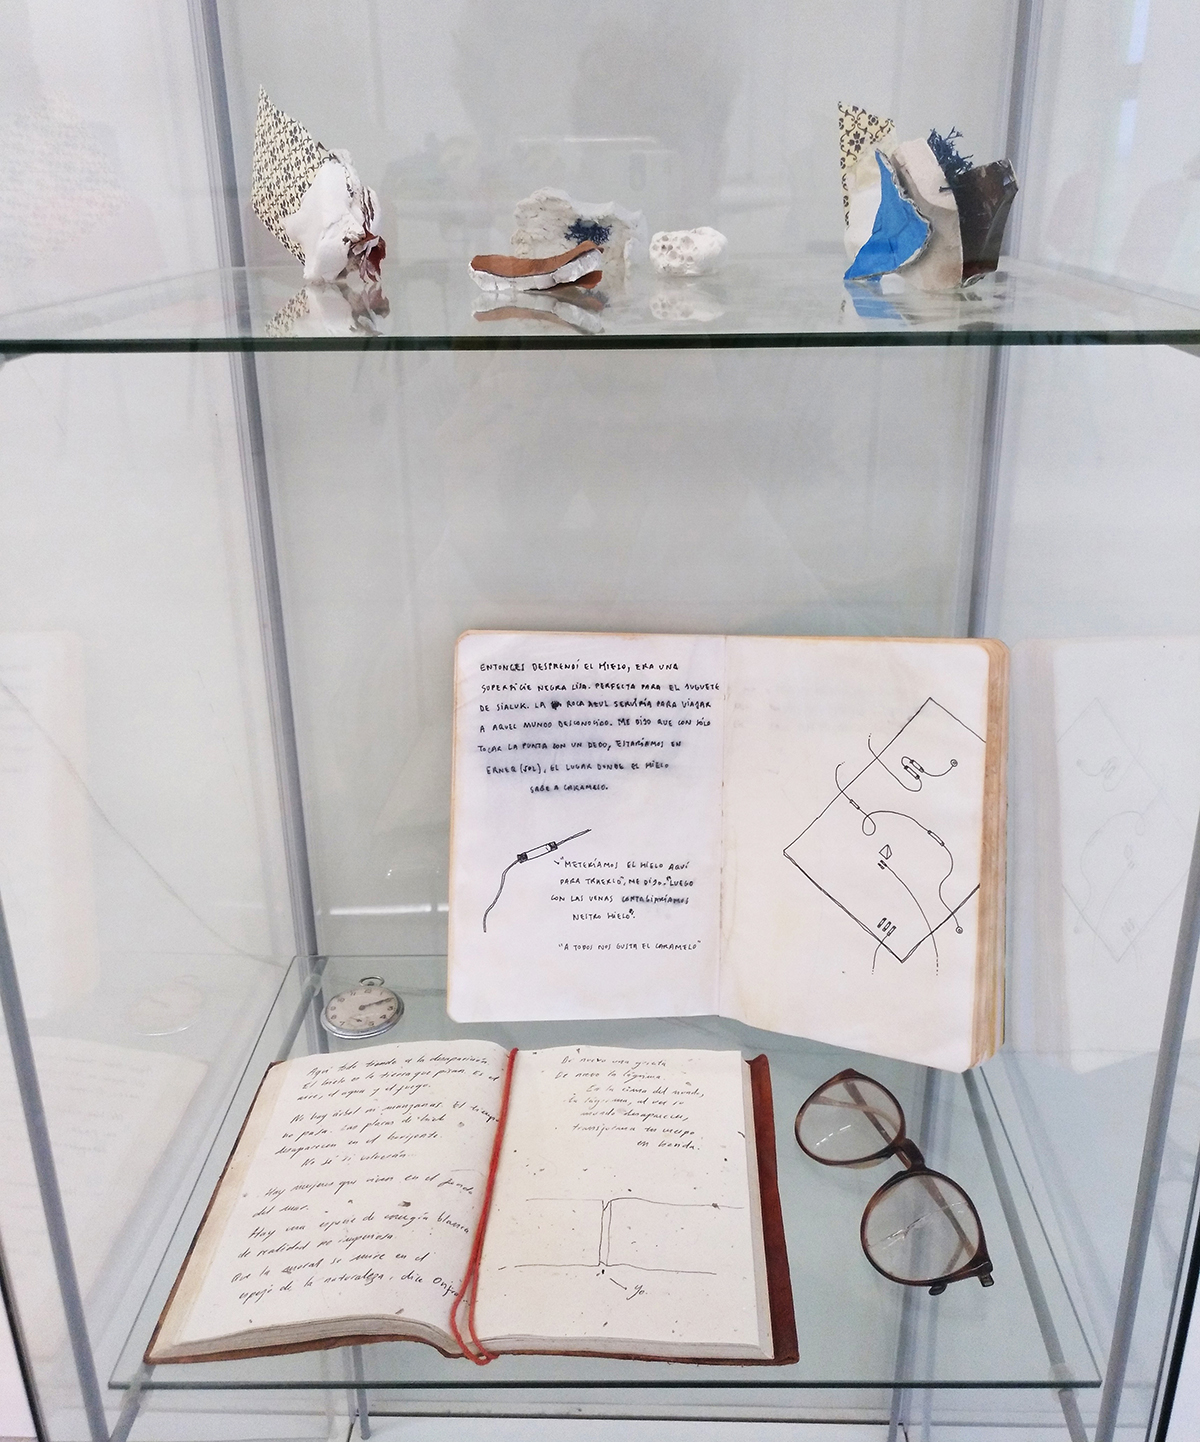 ENTONCES DESPRENDÍ EL HIELO, ERA UNA
SUPERFICIE NEGRA LISA. PERFECTA PARA EL JUGUETE
DE SIALUK. LA ROCA AZUL SERVIRÍA PARA VIAJAR
A AQUEL MUNDO DESCONOCIDO. ME DIJO QUE CON SÓLO
TOCAR LA PUNTA CON UN DEDO, ESTARÍAMOS EN
ERNEQ (SOL), EL LUGAR DONDE EL HIELO
SABE A CARAMELO.
"METERÍAMOS EL HIELO AQUÍ
PARA TRAERLO", ME DIJO. "LUEGO
CON LAS VENAS CONTAGIARÍAMOS
NESTRO HIELO".
"A TODOS NOS GUSTA EL CARAMELO"
Aquí todo tiende a la desaparición
El hielo es la tierra que pisan. Es el
aire, el agua y el fuego.
No hay árbol ni manzanas. El tiempo
no pasa. Las placas de
desaparecen en el horizonte.
No sé si volverán...
Hay mujeres que viven en el fondo
del mar.
Hay una especie de energía blanca
de realidad no impuesta.
Que la moral se mire en el
espejo de la naturaleza, dice
De nuevo una grieta
De nuevo la lágrima
En la cima del mundo,
la lágrima, al ver su
mundo desaparecer,
transforma su cuerpo
en honda.
yo.